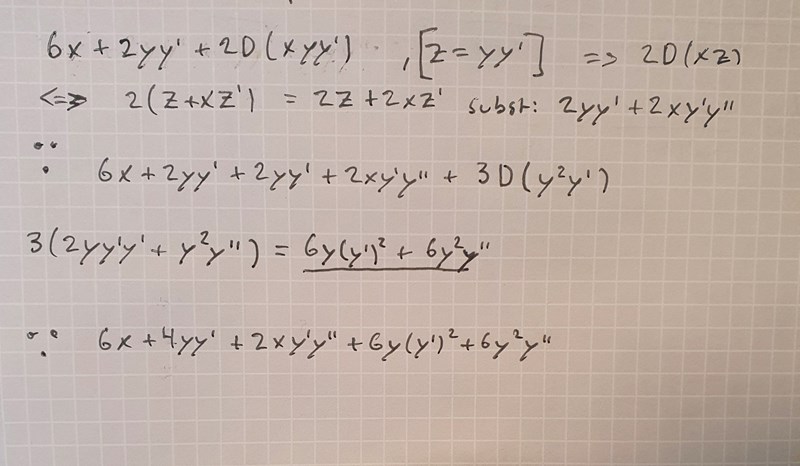 6x + 2yy' + 2D(xyy') , [z = yy'] => 2D(xz)
<=> 2(z+xz') = 2z + 2xz' subst: 2yy' + 2xy'y"
∵ 6x + 2yy' + 2yy' + 2xy'y" + 3D(y²y')
3(2yy'y' + y²y") = 6y(y')² + 6y²y"
∵ 6x + 4yy' + 2xy'y" + 6y(y')² + 6y²y"